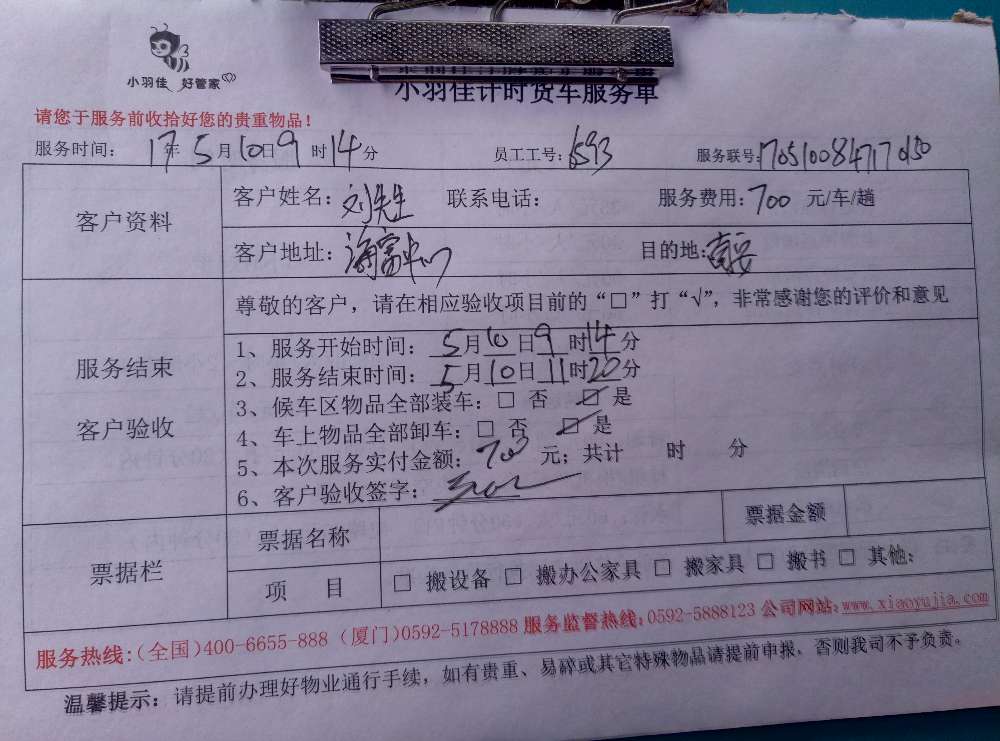 小羽佳 好管家
小羽佳计时货车服务单
请您于服务前收拾好您的贵重物品！
服务时间： 17年 5月10日9时14分 员工工号：6593 服务联号：
客户资料
客户姓名：刘先生 联系电话： 服务费用：700 元/车/趟
客户地址：海富中心 目的地：南安
服务结束
客户验收
尊敬的客户，请在相应验收项目前的“□”打“√”，非常感谢您的评价和意见
1、服务开始时间： 5月10日9时14分
2、服务结束时间： 5月10日11时20分
3、候车区物品全部装车：□ 否 ☑ 是
4、车上物品全部卸车：□ 否 ☑ 是
5、本次服务实付金额：700 元；共计 时 分
6、客户验收签字：
票据栏
票据名称 票据金额
项 目 □ 搬设备 □ 搬办公家具 □ 搬家具 □ 搬书 □ 其他：
服务热线：（全国）400-6655-888（厦门）0592-5178888 服务监督热线：0592-5888123 公司网站：www.xiaoyujia.com
温馨提示：请提前办理好物业通行手续，如有贵重、易碎或其它特殊物品请提前申报，否则我司不予负责。